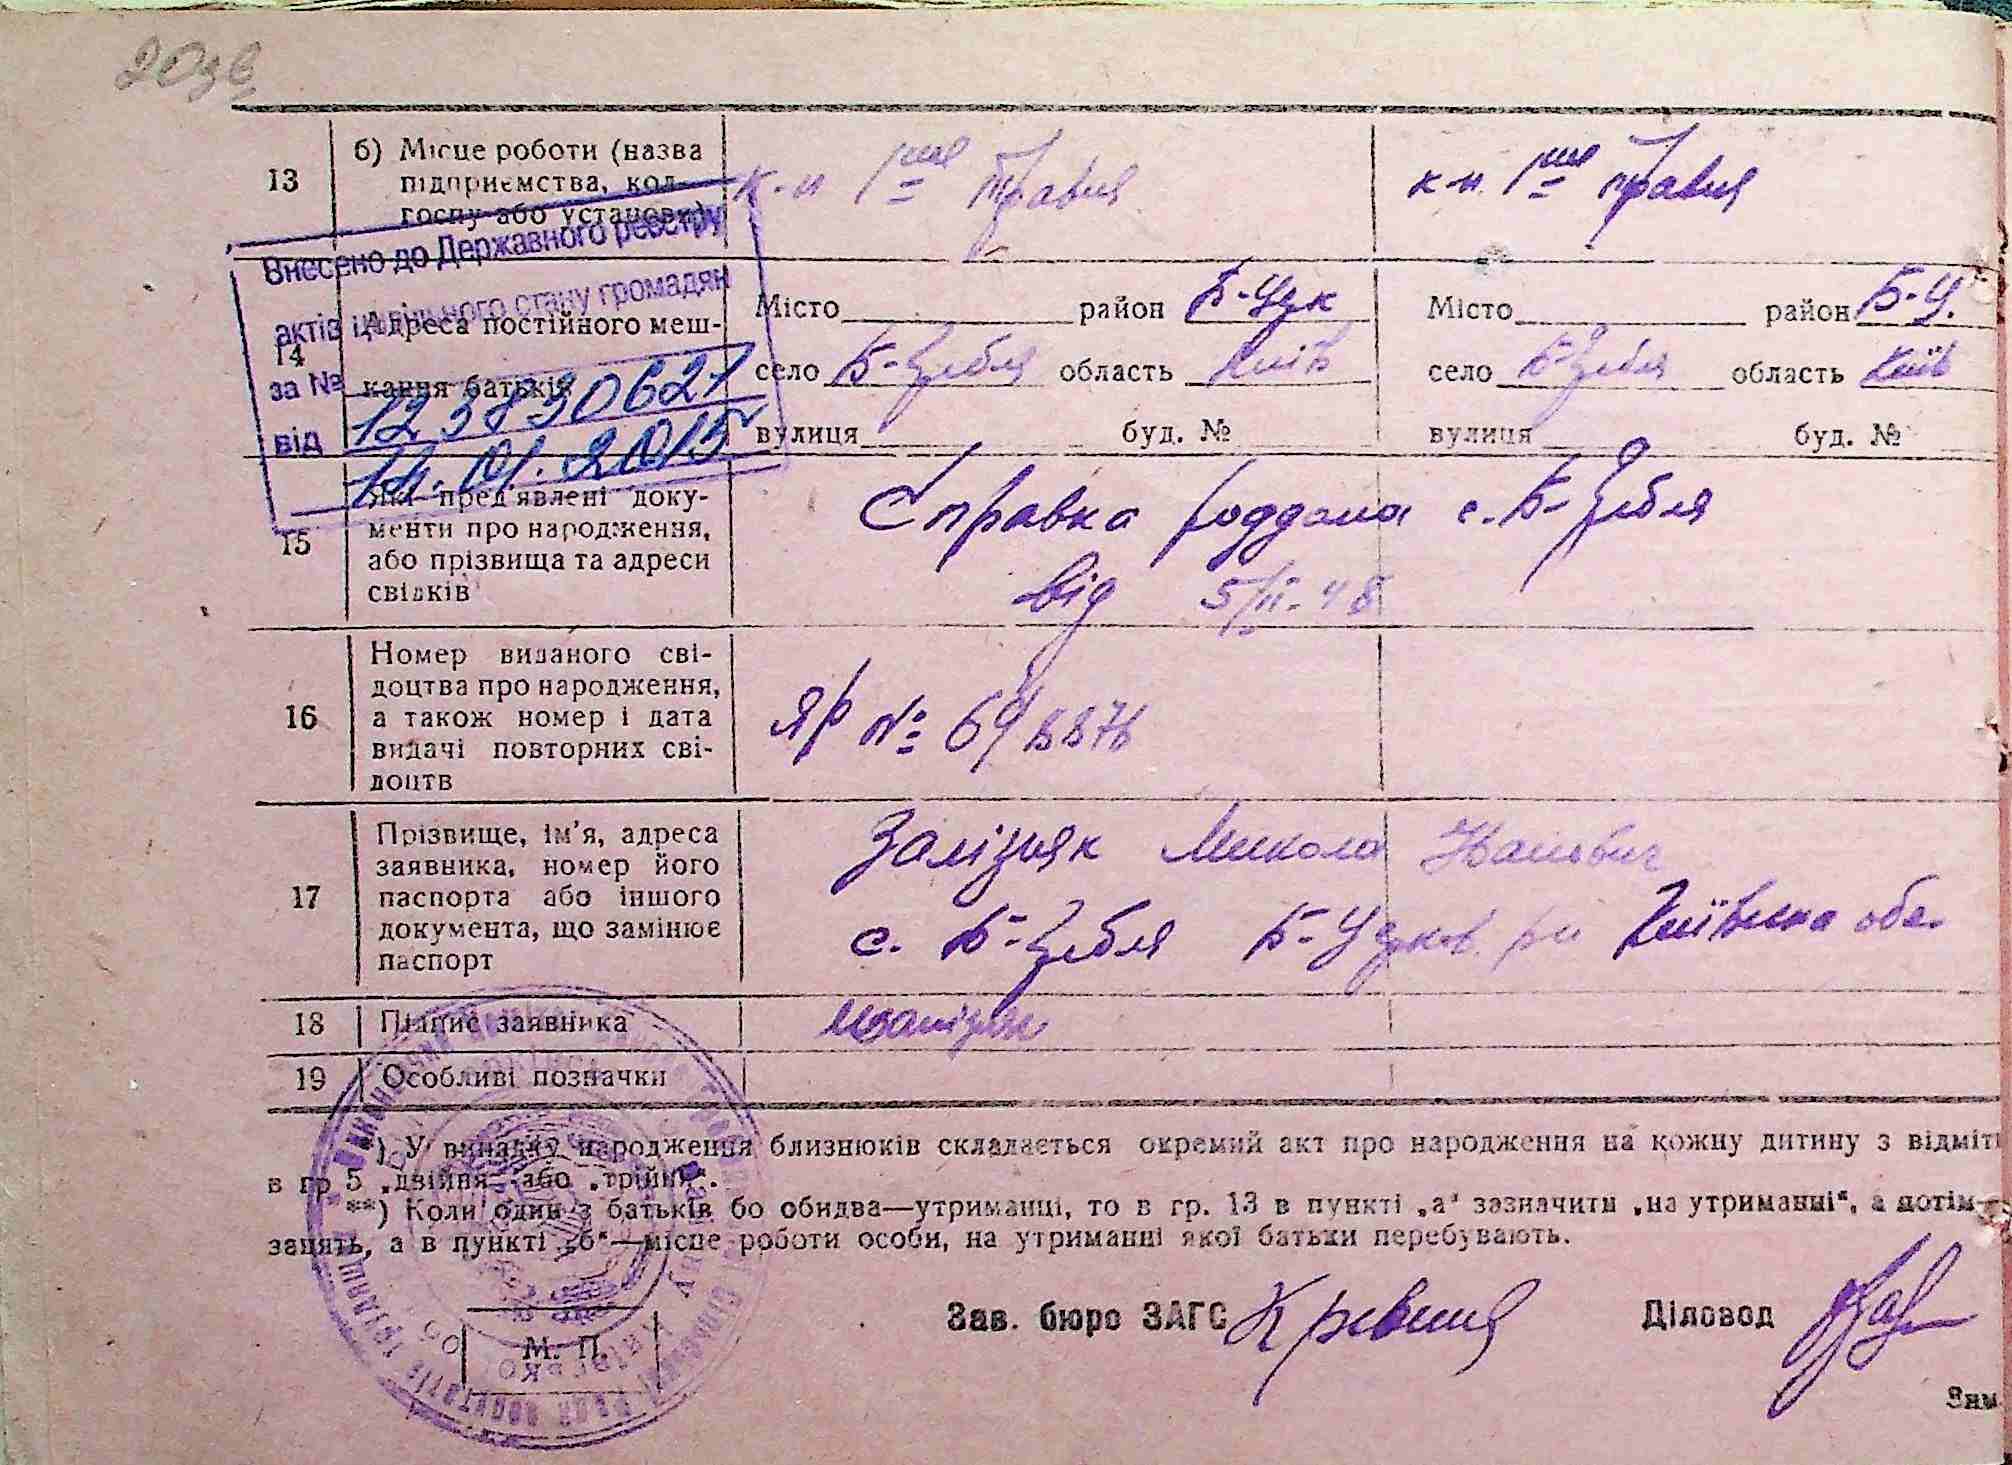 203в
13
б) Місце роботи (назва
підприємства, кол-
госпу або установи)
к-п 1ше травня
к-п 1ше травня
Внесено до Державного реєстру
актів цивільного стану громадян
за № 123830621
від 14.01.2015
14
Адреса постійного меш-
кання батьків
Місто район Б-Удк
село Б-Цебля область Київ
вулиця буд. №
Місто район Б-У.
село Б-Цебля область Київ
вулиця буд. №
15
Які пред'явлені доку-
менти про народження,
або прізвища та адреси
свідків
Справка роддома с. Б-Цебля
від 5/II-48
16
Номер виданого сві-
доцтва про народження,
а також номер і дата
видачі повторних сві-
доцтв
ЯР №
17
Прізвище, ім'я, адреса
заявника, номер його
паспорта або іншого
документа, що замінює
паспорт
Залізняк Микола Іванович
с. Б-Цебля Київська обл.
18
Підпис заявника
19
Особливі позначки
*) У випадку народження близнюків складається окремий акт про народження на кожну дитину з відміт
в гр 5 „двійня" або „трійня".
**) Коли один з батьків бо обидва—утриманці, то в гр. 13 в пункті „а" зазначити „на утриманні", а потім
занять, а в пункті „б"—місце роботи особи, на утриманні якої батьки перебувають.
М. П.
Зав. бюро ЗАГС
Діловод
Зам